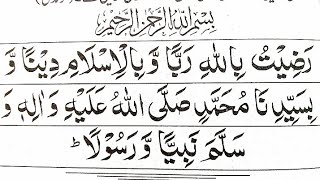 بِسْمِ اللهِ الرَّحْمٰنِ الرَّحِيْمِ
رَضِيْتُ بِاللهِ رَبًّا وَّ بِالْاِسْلَامِ دِيْنًا وَّ
بِسَيِّدِنَا مُحَمَّدٍ صَلَّى اللهُ عَلَيْهِ وَاٰلِهٖ وَ
سَلَّمَ نَبِيًّا وَّ رَسُوْلًا ؕ